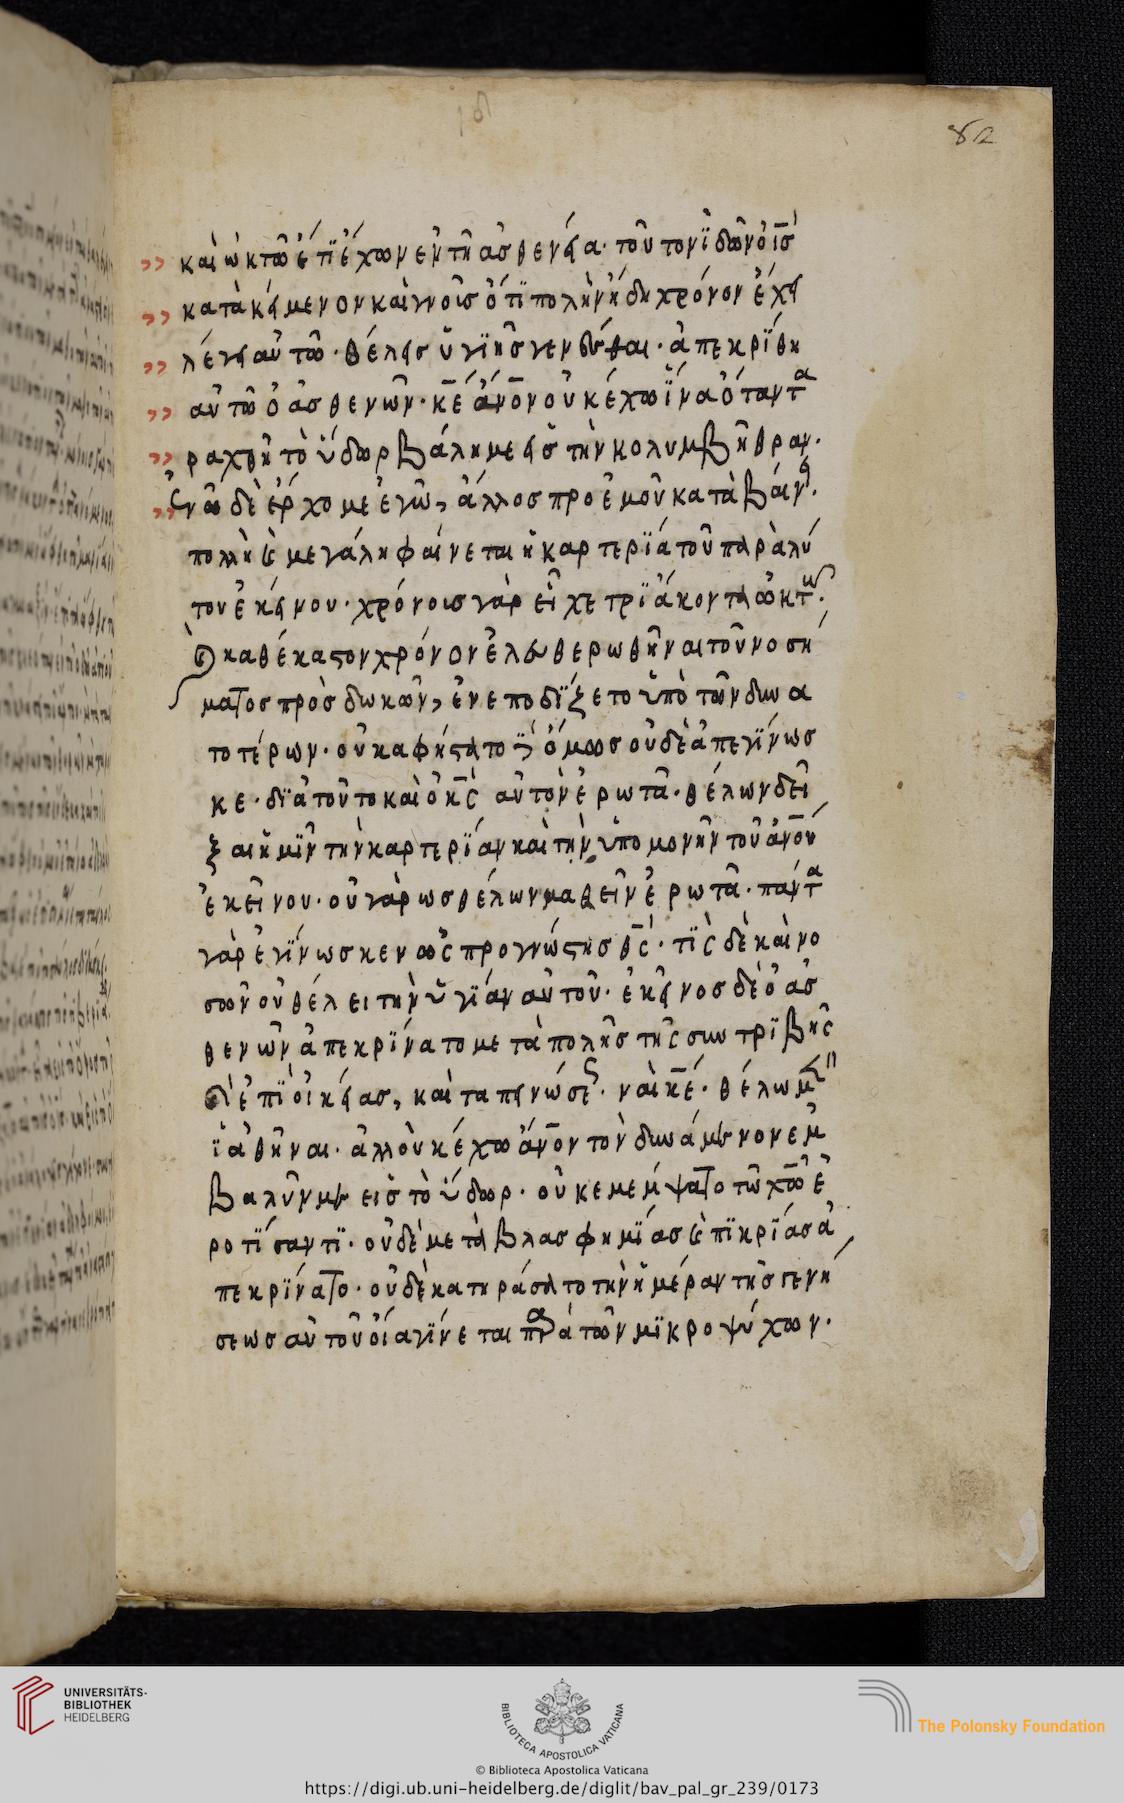 82
καὶ ὠκτῶ ἔτϊ ἔχων εν τῆ ἀσθενεία· τοῦτον ϊδὼν ὁ ῑσ̄
κατὰκείμενον καὶ γνοῖσ ὅτϊ πολὴν ἤδη χρόνον ἔχει
λέγει αὐτῶ· θέλεισ ὑγϊῆσ γενέσθαι· ἀπεκρϊθη
αὐτῶ ὁ ἀσθενῶν· κ̄ε̄ ἄν̄ο̄ν οὐκ έχω ΐνα ὅταν τα
ραχθῆ τὸ ὕδωρ βάλη με εισ τὴν κολυμβήθραν·
ἐνῶ δὲ ἔρχομε ἐγῶ, ἄλλοσ προ ἐμοῦ κατὰβαίνει·
πολλὴ καὶ μεγάλη φαίνεται ἡ καρτερϊά τοῦ παραλύ
του ἐκείνου· χρόνοισ γὰρ εἶχε τρϊάκοντα ὀκτῶ·
Ὁ καθέκαστον χρόνον ἐλευθερωθῆναι τοῦ νοσή
ματοσ προσδωκῶν, ἐνεποδϊζετο ὑπὸ τῶν δυνα
τοτέρων· οὐκ αφήστατο
ὅμωσ οὐδὲ ἀπεγϊνωσ
κε· δϊὰ τοῦτο καὶ ὁ κ̄ς̄ αὐτὸν ἐρωτᾶ· θέλων δεῖ
ξαι ἡμῖν τὴν καρτερϊάν καὶ τὴν ὑπομονὴν τοῦ ἀν̄ο̄ύ
ἐκείνου· οὐ γὰρ ωσ θέλων μαθεῖν ἐρωτᾶ· πάντα
γὰρ ἐγϊνωσκεν ὡς προγνώστησ θ̄ς̄· τϊς δὲ καὶ νο
σῶν οὐ θέλει τὴν ὑγϊάν αὐτοῦ· ἐκεῖνοσ δὲ ὁ ἀσ
θενῶν ἀπεκρϊνατο μετὰ πολῆσ τῆς συντρϊβῆς
καὶ ἐπϊοικείασ, καὶ ταπεινώσεως· ναὶ κ̄ε̄· θέλω μὲν
ϊαθῆναι· ἀλλ' οὐκ έχω ἄν̄ο̄ν τὸν δυνάμενον εμ
βαλῦν με εισ τὸ ὕδωρ· οὐκ εμεμψατο τῶ χ̄ῶ ἐ
ροτϊσαντϊ· οὐδὲ μετὰ βλασφημϊάσ καὶ πϊκρϊάσ ἀ
πεκρϊνατο· οὐδὲ κατηράσατο τὴν ἡμέραν τῆσ γενή
σεωσ αὐτοῦ οἷα γϊνεται παρὰ τῶν μϊκροψύχων·
UNIVERSITÄTS-
BIBLIOTHEK
HEIDELBERG
BIBLIOTECA APOSTOLICA VATICANA
The Polonsky Foundation
© Biblioteca Apostolica Vaticana
https://digi.ub.uni-heidelberg.de/diglit/bav_pal_gr_239/0173